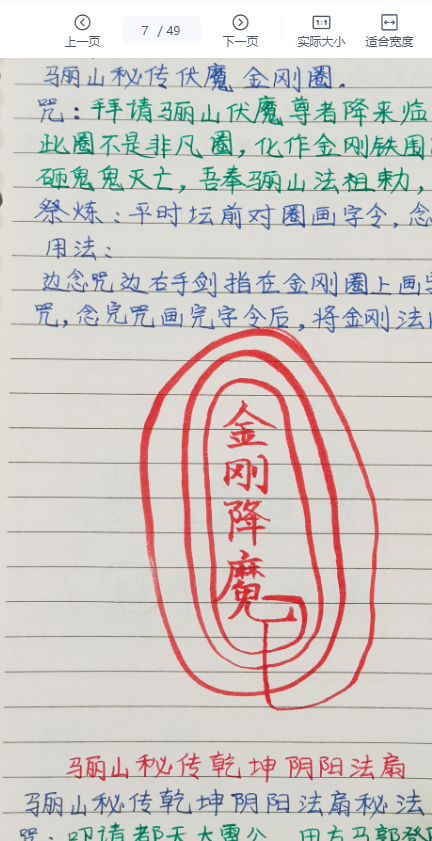 上一页
7 / 49
下一页
1:1
实际大小
适合宽度
骊山秘传伏魔金刚圈.
咒:拜请骊山伏魔尊者降来临
此圈不是非凡圈,化作金刚铁围
砸鬼鬼灭亡,吾奉骊山法祖敕力,
祭炼:平时坛前对圈画字令,念
用法:
边念咒边右手剑指在金刚圈上画
咒,念完咒画完字令后,将金刚法
金刚降魔
骊山秘传乾坤阴阳法扇
骊山秘传乾坤阴阳法扇秘法